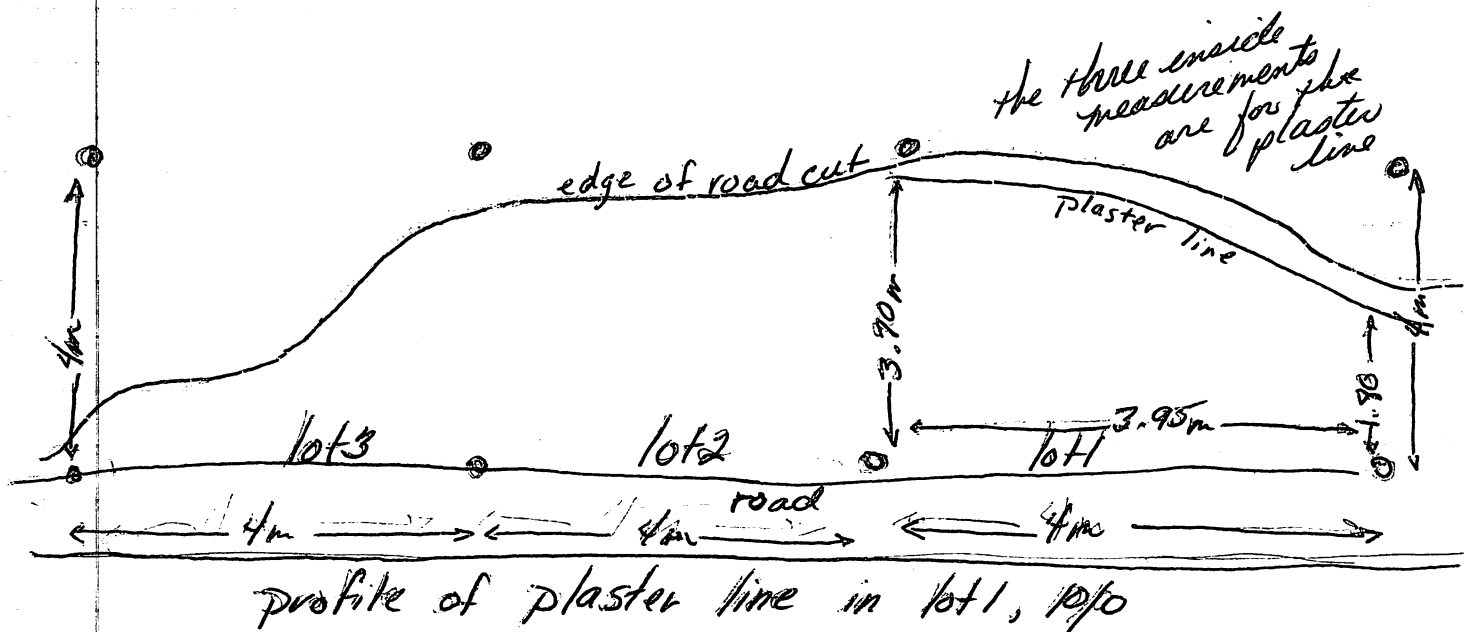 the three inside
measurements
are for the
plaster
line
edge of road cut
plaster line
4m
3.90m
4m
1.80
3.95m
lot3
lot2
lot1
road
4m
4m
4m
profile of plaster line in lot1,